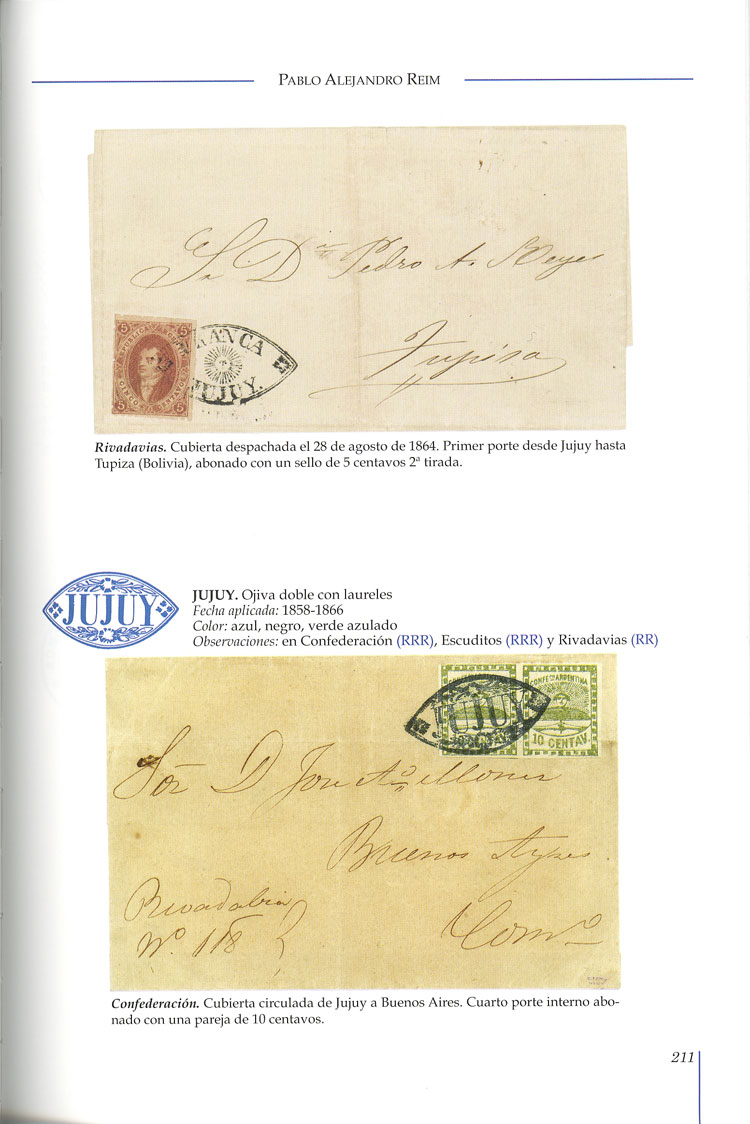 PABLO ALEJANDRO REIM
Sr. Dn Pedro A. Reyes
5 5
FRANCA
JUJUY.
Tupiza
5 5
Rivadavias. Cubierta despachada el 28 de agosto de 1864. Primer porte desde Jujuy hasta
Tupiza (Bolivia), abonado con un sello de 5 centavos 2ª tirada.
JUJUY
JUJUY. Ojiva doble con laureles
Fecha aplicada: 1858-1866
Color: azul, negro, verde azulado
Observaciones: en Confederación (RRR), Escuditos (RRR) y Rivadavias (RR)
CONFEON ARGENTINA
JUJUY
10 CENTAV
Sor D José
Buenos Ayres
Rivadabia
Nº 118
Confederación. Cubierta circulada de Jujuy a Buenos Aires. Cuarto porte interno abo-
nado con una pareja de 10 centavos.
211